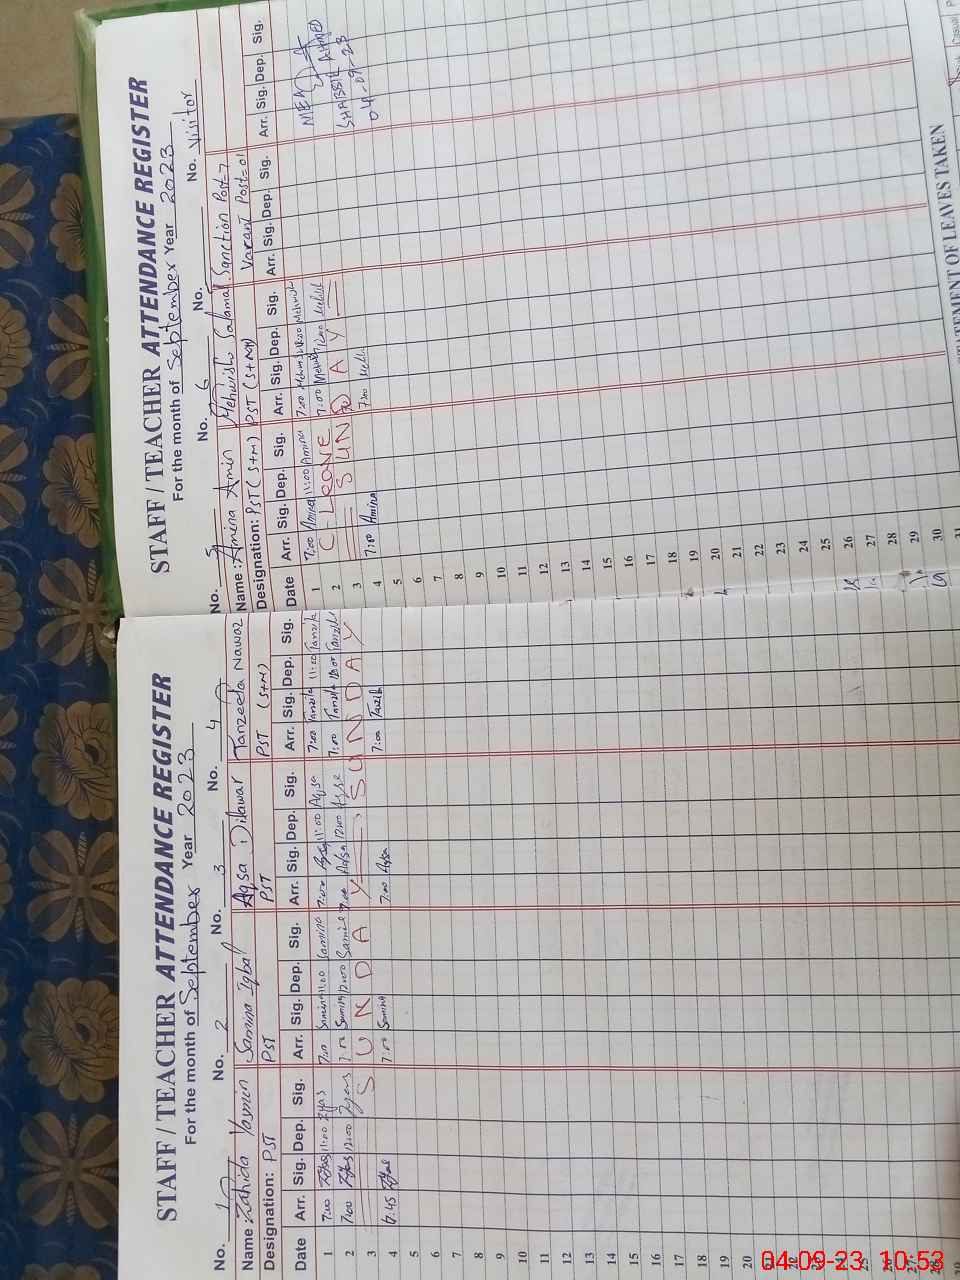 STAFF / TEACHER ATTENDANCE REGISTER
For the month of September Year 2023
No. 1 No. 2 No. 3 No. 4
Name: Zahida Yasmin Samina Iqbal Aqsa Dilawar Tanzeela Nawaz
Designation: PST PST PST PST (S+M)
Date Arr. Sig. Dep. Sig. Arr. Sig. Dep. Sig. Arr. Sig. Dep. Sig. Arr. Sig. Dep. Sig.
1 7:00 11:00 7:00 Samina 11:00 Samina 7:00 Aqsa 11:00 Aqsa 7:00 Tanzila 11:00 Tanzila
2 7:00 12:00 7:00 Samina 12:00 Samina 7:00 Aqsa 12:00 Aqsa 7:00 Tanzila 12:00 Tanzila
3 S U N D A Y SUNDAY
4 6:45 7:00 Samina 7:00 Aqsa 7:00 Tanzila
5
6
7
8
9
10
11
12
13
14
15
16
17
18
19
20
21
22
23
24
25
26
27
28
STAFF / TEACHER ATTENDANCE REGISTER
For the month of September Year 2023
No. 5 No. 6 No. No. Visitor
Name: Amina Amin Mehwish Salamat Sanction Post=7
Designation: PST (S+M) PST (S+M) Vacant Post=01
Date Arr. Sig. Dep. Sig. Arr. Sig. Dep. Sig. Arr. Sig. Dep. Sig. Arr. Sig. Dep. Sig.
1 7:00 Amina 11:00 Amina 7:00 Mehwish 11:00 Mehwish MEA
2 C. Leave 7:00 Mehwish 12:00 Mehwish SHABBIR AHMED
3 SUNDAY 04-09-23
4 7:00 Amina 7:00
5
6
7
8
9
10
11
12
13
14
15
16
17
18
19
20
21
22
23
24
25
26
27
28
29
30
31
STATEMENT OF LEAVES TAKEN
Casual
04-09-23 10:53